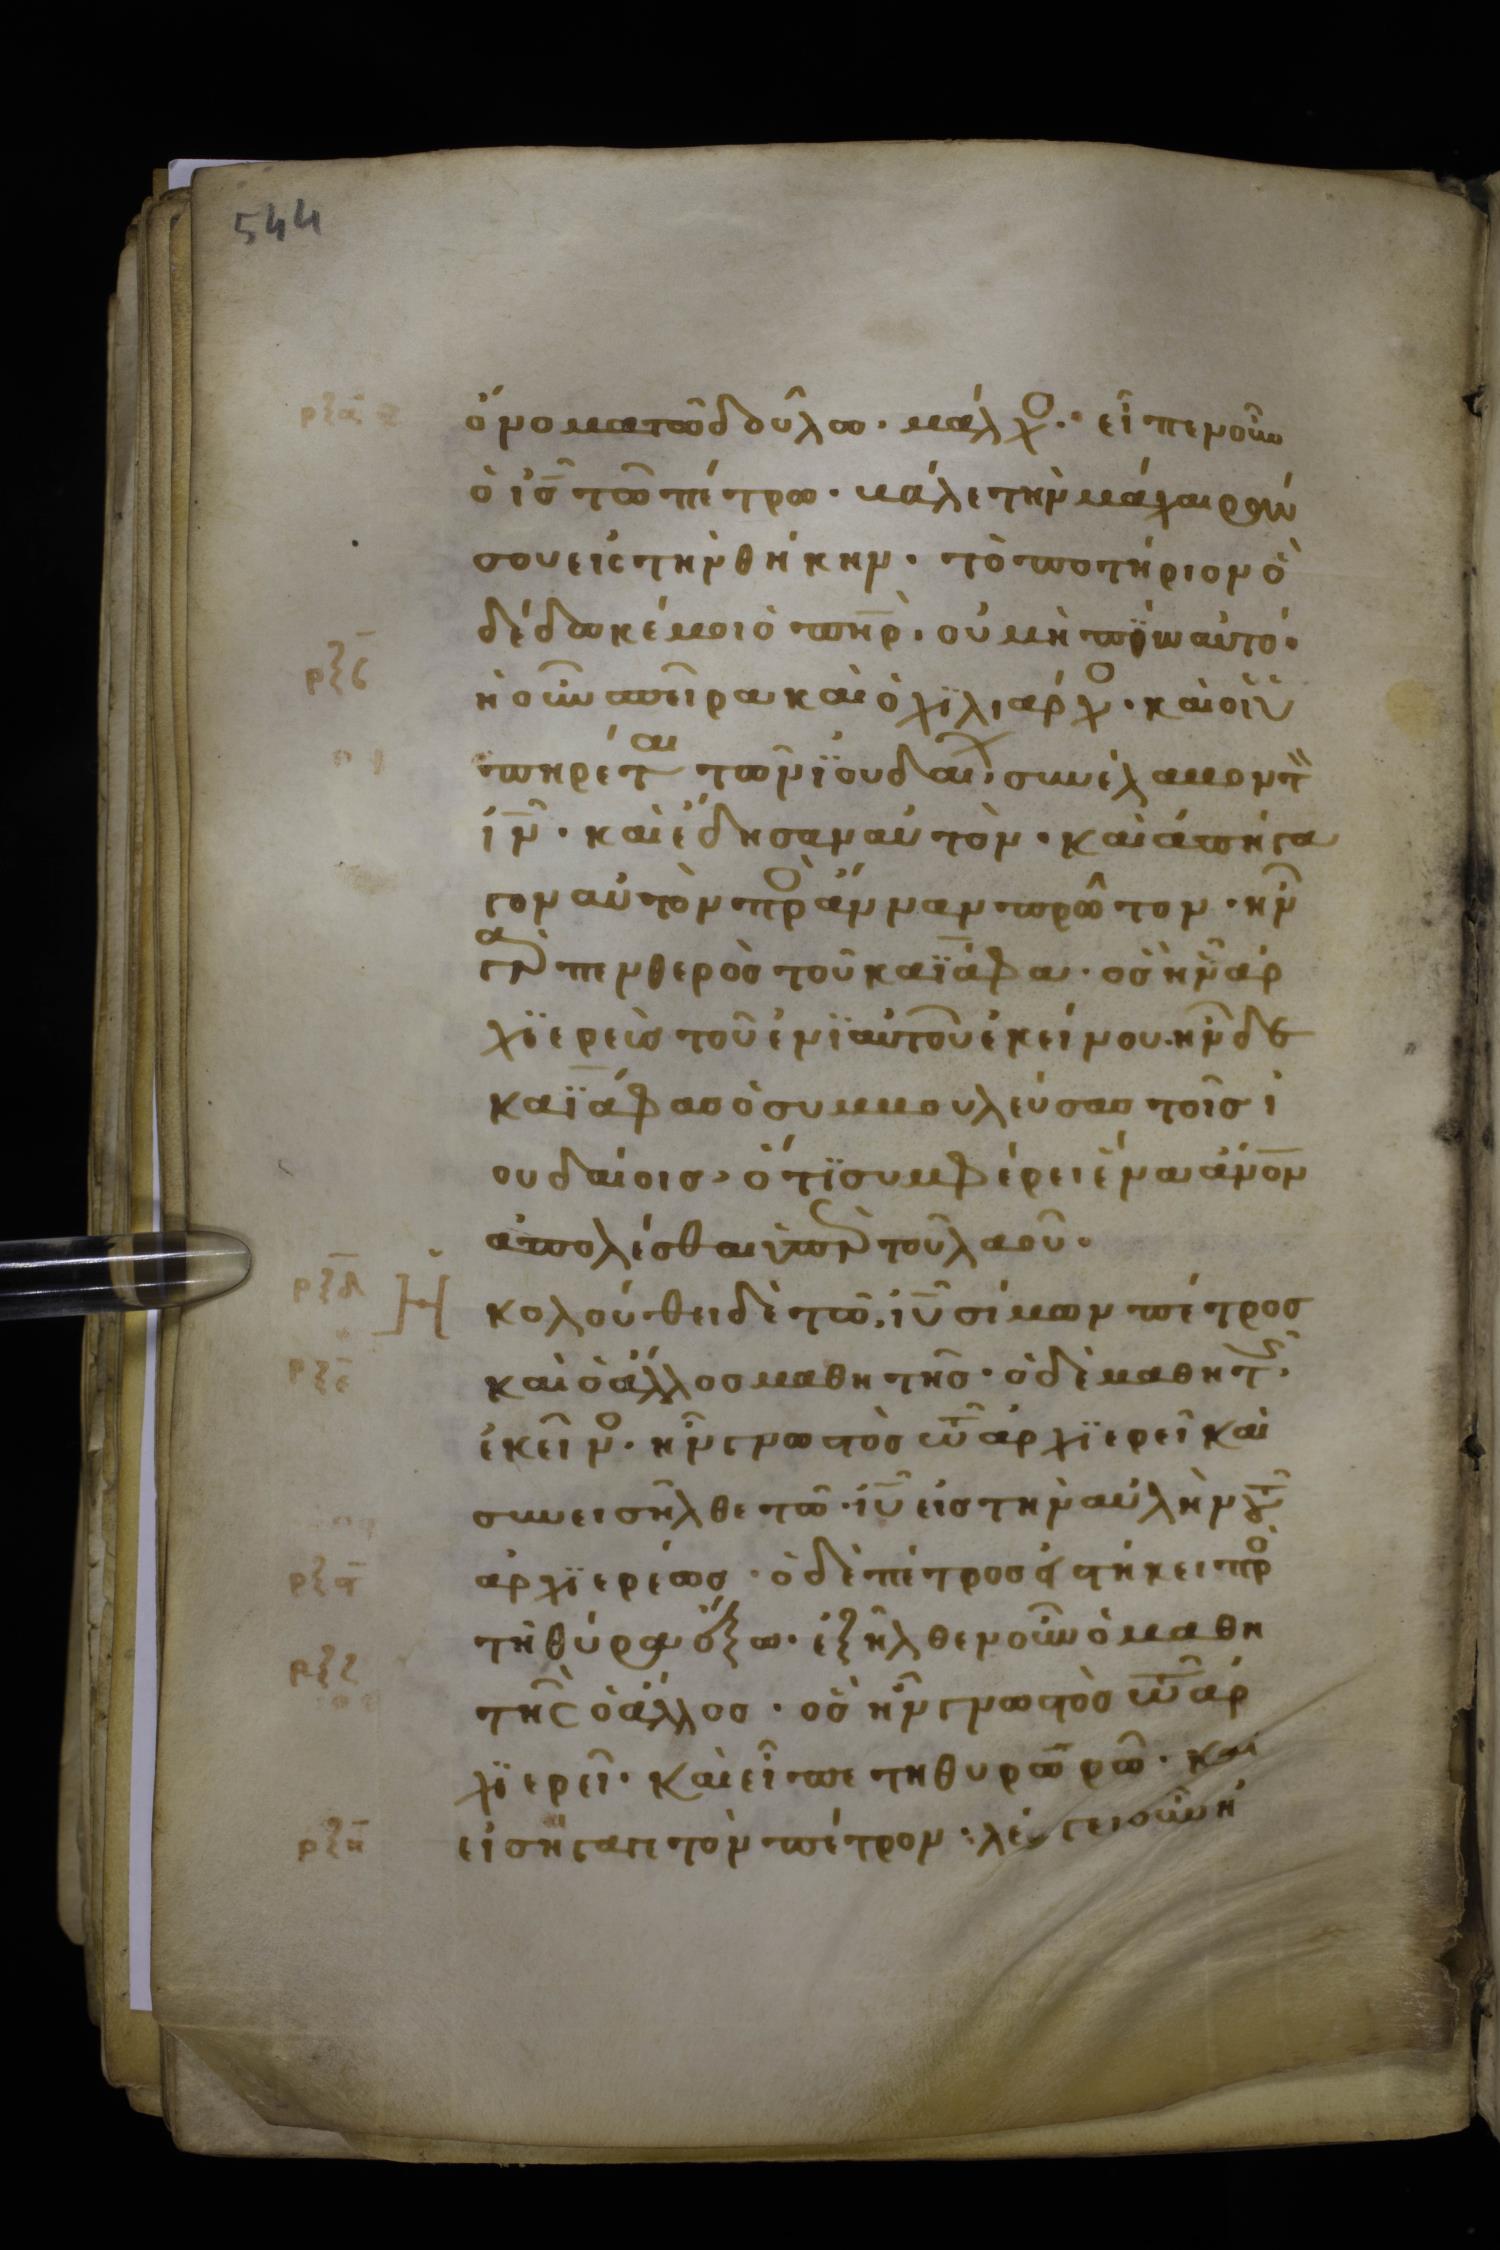 544
ὄνοματῶδδούλω· μάλχο· εἶπενοὖν
ὁ ισ τῶπέτρω· βάλετὴνμάχαιράν
σουεἰςτὴνθήκην· τὸποτήριονὃ
δέδωκέμοιὁ πηρ· οὐμὴ πίϊωαὐτό·
ἡοὖνσπεῖρακαὶὁχϊλίαρχο· καὶοἱὑ
πηρέται τῶνϊουδαι, συνέλαβοντ
ιν· καὶἔδησαναὐτὸν· καὶἀπήγα
γοναὐτὸνπρὸἄνναν πρῶτον· ἦν
γὰρ πενθερὸς τοῦκαϊάφα· ὃσἦνἀρ
χϊερεὺσ τοῦἐνϊαυτοῦἐκείνου· ἦνδὲ
καϊάφασὁσυμβουλεύσασ τοῖσ ἰ
ουδαίοισ, ὅτϊσυμφέρειἕναἄνον
ἀπολέσθαιὑπὲρ τοῦλαοῦ·
ρξδ Ἠ
κολούθειδὲτῶ, ιυ σίμων πέτροσ
ρξε
καὶὁἄλλοσμαθητῆσ· ὁδὲμαθητ,
ἐκεῖνο· ἦνγνωστὸσ τῶἀρχϊερεῖκαὶ
συνεισῆλθετῶ· ιυ εἰσ τὴναὐλὴντοῦ
ἀρχϊερέωσ· ὁδὲπέτροσεἱστήκειπρὸ
τῆθύραἔξω· ἐξῆλθενοὖνὁμαθη
ρξζ
τὴςὁἄλλοσ· ὃσἦνγνωστὸσ τῶἀρ
χϊερεῖ· καὶεἶπε τηθυρωρῶ· καὶ
ρξη
εἰσήγαγετὸνπέτρον· λέγειοὖνἡ